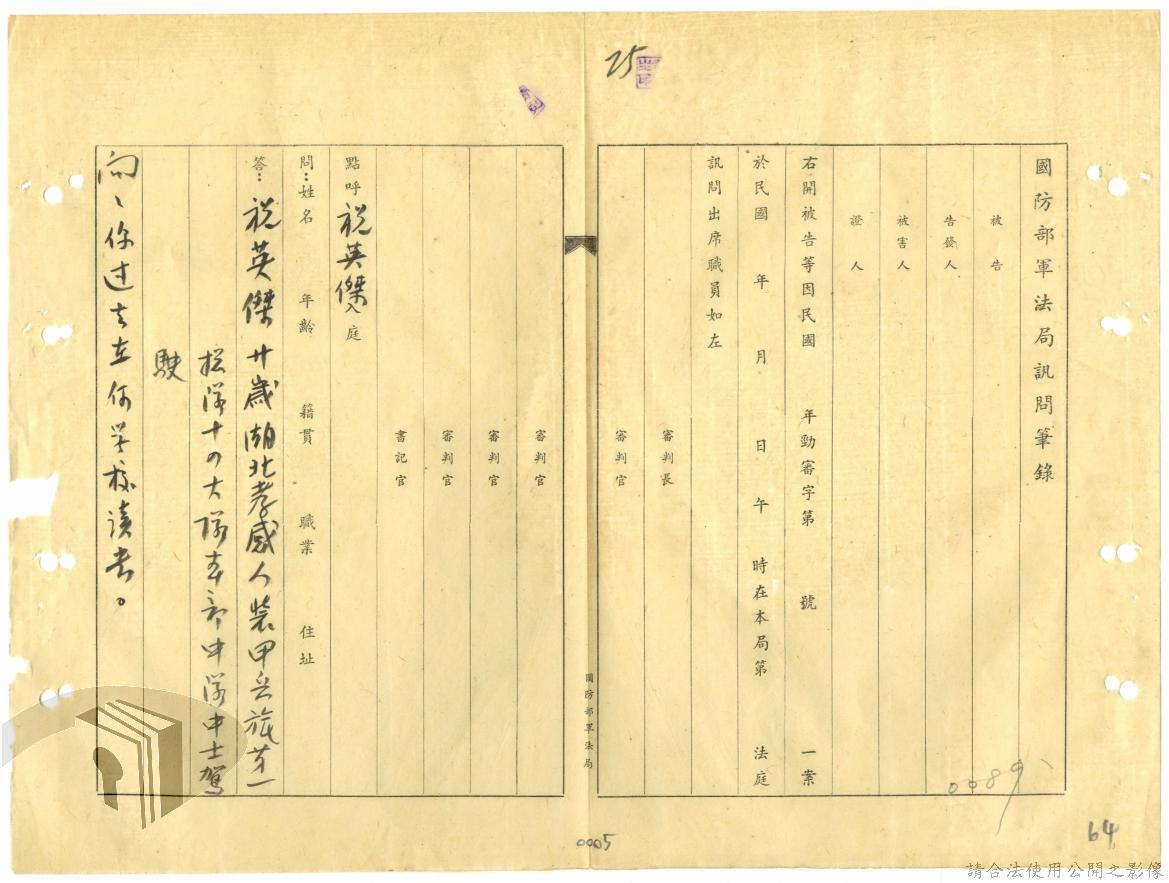 25
國防部軍法局訊問筆錄
被告
告發人
被害人
證人
右開被告等因民國 年勁審字第 號 一案
於民國 年 月 日 午 時在本局第 法庭
訊問出席職員如左
審判長
審判官
國防部軍法局
審判官
審判官
審判官
書記官
點呼祝英傑入庭
問:姓名 年齡 籍貫 職業 住址
答:祝英傑廿歲湖北孝感人裝甲兵旅第一
總隊十四大隊本部中隊中士駕
駛
問:你过去在何学校讀书。
0089
0005
64
請合法使用公開之影像